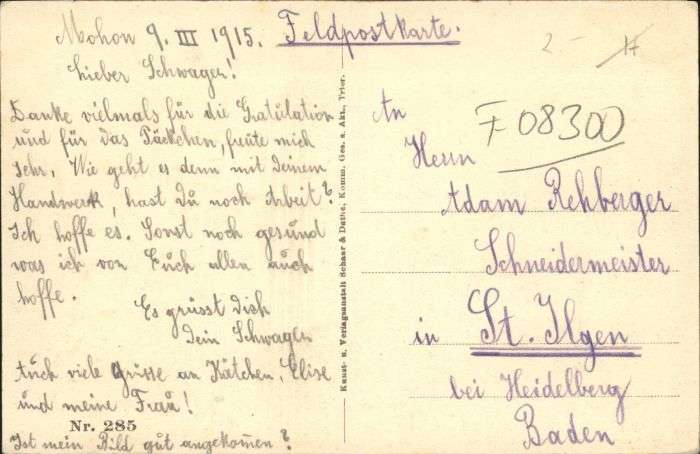 Mohon 9. III 1915. Feldpostkarte.
Lieber Schwager!
Danke vielmals für die Gratulation
und für das Päckchen, freute mich
sehr. Wie geht es denn mit Deinem
Handwerk, hast Du noch Arbeit?
Ich hoffe es. Sonst noch gesund
was ich von Euch allen auch
hoffe.
Es grüsst Dich
Dein Schwager
Auch viele Grüsse an Kätchen, Elise
und meine Frau!
Nr. 285
Ist mein Bild gut angekommen?
Kunst- u. Verlagsanstalt Schaar & Dathe, Komm. Ges. a. Akt., Trier.
2- 17
F 08300
An
Herrn
Adam Rehberger
Schneidermeister
in St. Ilgen
bei Heidelberg
Baden